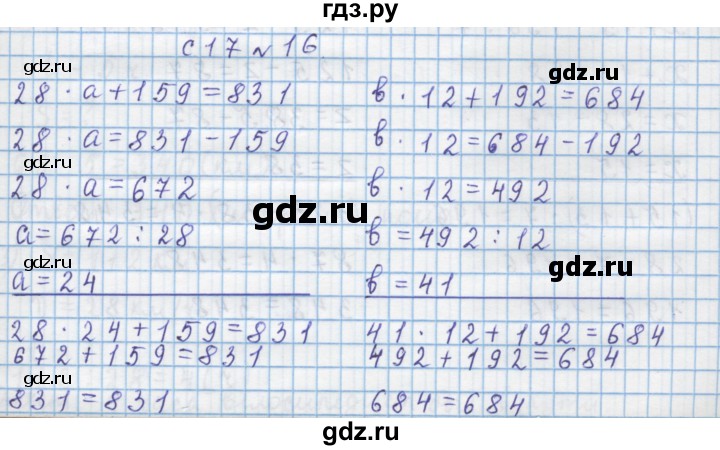 гдз.ру
с17 № 16
28 · а + 159 = 831
28 · а = 831 - 159
28 · а = 672
а = 672 : 28
а = 24
28 · 24 + 159 = 831
672 + 159 = 831
831 = 831
в · 12 + 192 = 684
в · 12 = 684 - 192
в · 12 = 492
в = 492 : 12
в = 41
41 · 12 + 192 = 684
492 + 192 = 684
684 = 684
gdz.ru
gdz.ru
gdz.ru
gdz.ru
gdz.ru
gdz.ru
gdz.ru
gdz.ru
gdz.ru
gdz.ru
gdz.ru